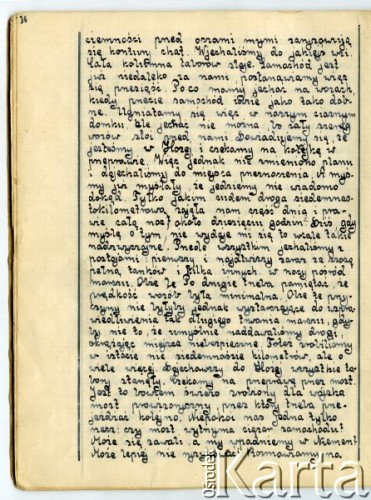 36
ciemności przed oczami mymi zarysowują
się kontury chat. Wjechaliśmy do jakiejś wsi.
Cała kolumna taborów stoję. Samochód jest
już niedaleko za nami, postanawiamy więc
się przesiąść. Po co mamy jechać na wozach,
kiedy przecie samochód idzie jako tako dob-
rze. Wgniatamy się więc w naszym ciasnym
domku. Ale jechać nie można, bo cały szereg
wozów stoi przed nami. Dowiadujemy się, że
jesteśmy w Hożej i czekamy na kolejkę w
przeprawie. Więc jednak nie zmieniono planu
i dojechaliśmy do miejsca przeznaczenia. A myś-
my już myślały, że jedziemy nie wiadomo
dokąd. Tylko jakim cudem droga siedemnas-
tokilometrowa zajęła nam część dnia i pra-
wie całą noc, około dziesięciu godzin. Dziś, gdy
myślę o tym nie wydaje mi się to wcale takie
nadzwyczajne. Przede wszystkim jechaliśmy z
postojami: pierwszy i najdłuższy zaraz za
pełną tanków i kilka innych, w nocy pośród
Po drugie trzeba pamiętać, że
prędkość wozów była minimalna. Obie te przy-
czyny nie byłyby jednak wystarczające do uspra-
wiedliwienia tak długiego trwania marszu, gdy-
by nie to, że umyślnie nadkładaliśmy drogi,
okrążając miejsca niebezpieczne. Toteż zrobiliśmy
w istocie nie siedemnaście kilometrów, ale o
wiele więcej. Dojechawszy do Hożej wszystkie ta-
bory stanęły, czekamy na przeprawę przez most.
Jest to bowiem świeżo zrobiony dla wojska
most prowizoryczny, przez który trzeba prze-
jeżdżać kolejno. Niepokoi nas jedna tylko
rzecz: czy most wytrzyma ciężar samochodu?
Może się zawali, a my wpadniemy w Niemen?
Może lepiej nie ryzykować? Rozmawiamy na
ośrodek
Karta